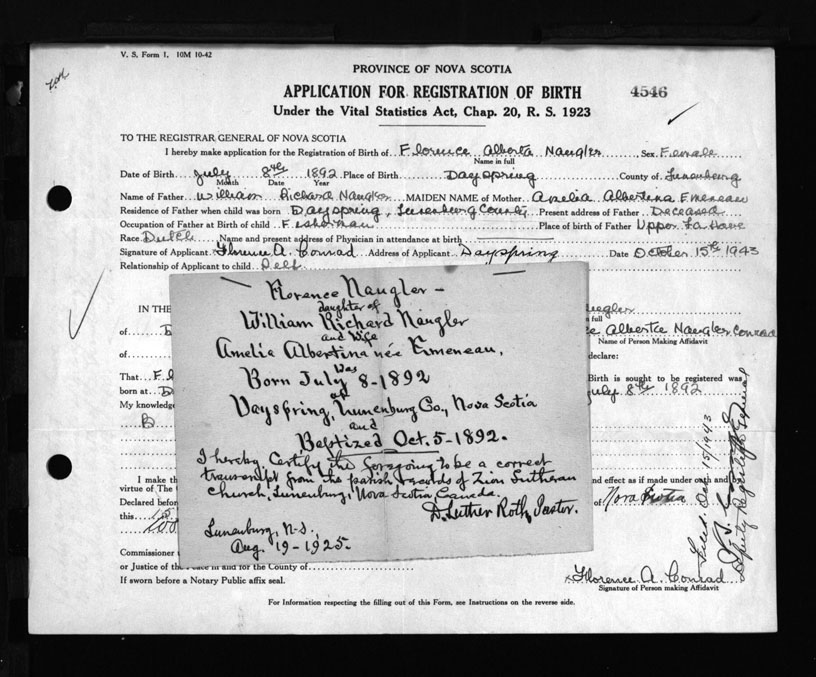 V. S. Form 1. 10M 10-42
PROVINCE OF NOVA SCOTIA
APPLICATION FOR REGISTRATION OF BIRTH
4546
Under the Vital Statistics Act, Chap. 20, R. S. 1923
TO THE REGISTRAR GENERAL OF NOVA SCOTIA
I hereby make application for the Registration of Birth of Florence Alberta Naugler Sex Female
Name in full
Date of Birth July 8th 1892 Place of Birth Dayspring County of Lunenburg
Month Date Year
Name of Father William Richard Naugler MAIDEN NAME of Mother Amelia Albertina Emeneau
Residence of Father when child was born Dayspring, Lunenburg County Present address of Father Deceased
Occupation of Father at Birth of child Fisherman Place of birth of Father Upper La Have
Race Dutch Name and present address of Physician in attendance at birth
Signature of Applicant Florence A. Conrad Address of Applicant Dayspring Date October 15th 1943
Relationship of Applicant to child Self
Florence Naugler -
daughter of
William Richard Naugler
and Wife
Amelia Albertina née Emeneau,
was
Born July 8-1892
at
Dayspring, Lunenburg Co., Nova Scotia
and
Baptized Oct. 5-1892.
I hereby Certify the foregoing to be a correct
transcript from the parish records of Zion Lutheran
Church, Lunenburg, Nova Scotia, Canada.
D. Luther Roth, Pastor.
Lunenburg, N.S.,
Aug. 19-1925.
IN THE
of Alberta Naugler Conrad
Name of Person Making Affidavit
of declare:
That Birth is sought to be registered was
born at July 8th 1892
My knowledge
I make th and effect as if made under oath and
virtue of The
Declared before of Nova Scotia
this
Commissioner
or Justice of the Peace in and for the County of
If sworn before a Notary Public affix seal.
Florence A. Conrad
Signature of Person making Affidavit
Deputy Registrar General
For Information respecting the filling out of this Form, see Instructions on the reverse side.